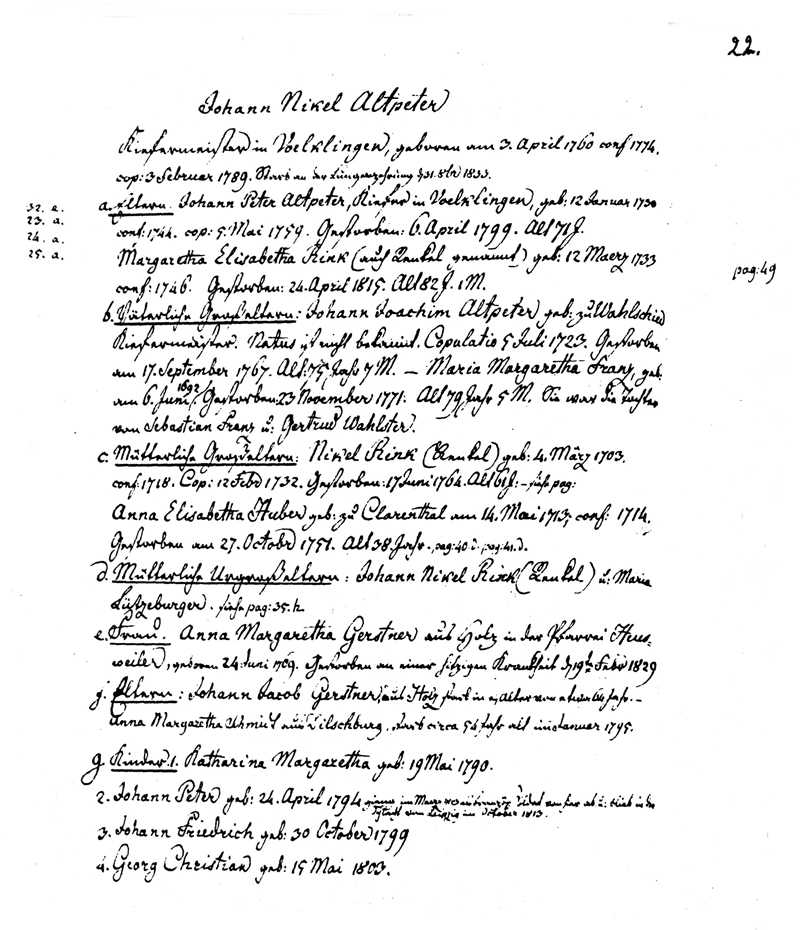 22.
Johann Nikel Altpeter
Kiefermeister in Voelklingen, geboren am 3. April 1760 conf 1774.
cop: 3 Februar 1789. Starb an der Lungenzehrung d 31. 8br 1833.
32. e.
23. a.
24. a.
25. a.
a. Eltern: Johann Peter Altpeter, Kiefer in Voelklingen, geb: 12 Januar 1730
conf: 1744. cop: 5. Mai 1759. Gestorben: 6. April 1799. Alt 71 J.
Margaretha Elisabetha Rink (auch Renkel genannt) geb: 12 Maerz 1733
conf: 1746. Gestorben: 24. April 1815. Alt 82 J. 1 M.
pag: 49
b. Väterliche Großeltern: Johann Joachim Altpeter geb: zu Wahlschied
Kiefermeister. Natus ist nicht bekannt. Copulatio 5 Juli 1723. Gestorben
am 17. September 1767. Alt: 75 Jahr 7 M. – Maria Margaretha Franz, geb.
am 6. Juni 1692. Gestorben: 23 November 1771. Alt 79 Jahr 5 M. Sie war die Tochter
von Sebastian Franz u: Gertrud Wahlster.
c. Mütterliche Großeltern: Nikel Rink (Renkel) geb: 4. März 1703.
conf: 1718. Cop: 12 Febr 1732. Gestorben: 17 Juni 1764. Alt 61 J. – siehe pag:
Anna Elisabetha Huber geb: zu Clarenthal am 14. Mai 1713, conf: 1714.
Gestorben am 27. Octobr 1751. Alt 38 Jahr. pag: 40 pag: 41. d.
d. Mütterliche Urgroßeltern: Johann Nikel Rink (Renkel) u: Maria
Lützeburger. siehe pag: 35. h.
e. Frau. Anna Margaretha Gerstner aus Holz in der Pfarrei Heus-
weiler, geboren 24. Juni 1769. Gestorben an einer hitzigen Krankheit d 19t Febr 1829
f. Eltern: Johann Jacob Gerstner, aus Holz starb in e. Alter von etwa 64 Jahr. –
Anna Margaretha aus Dilschburg. starb circa 54 Jahr alt im Januar 1795.
g. Kinder 1. Katharina Margaretha geb: 19 Mai 1790.
2. Johann Peter geb: 24. April 1794 ging im Maerz von hier ab u: blieb in der
Schlacht von Leipzig im October 1813.
3. Johann Friedrich geb: 30 October 1799
4. Georg Christian geb: 15 Mai 1803.